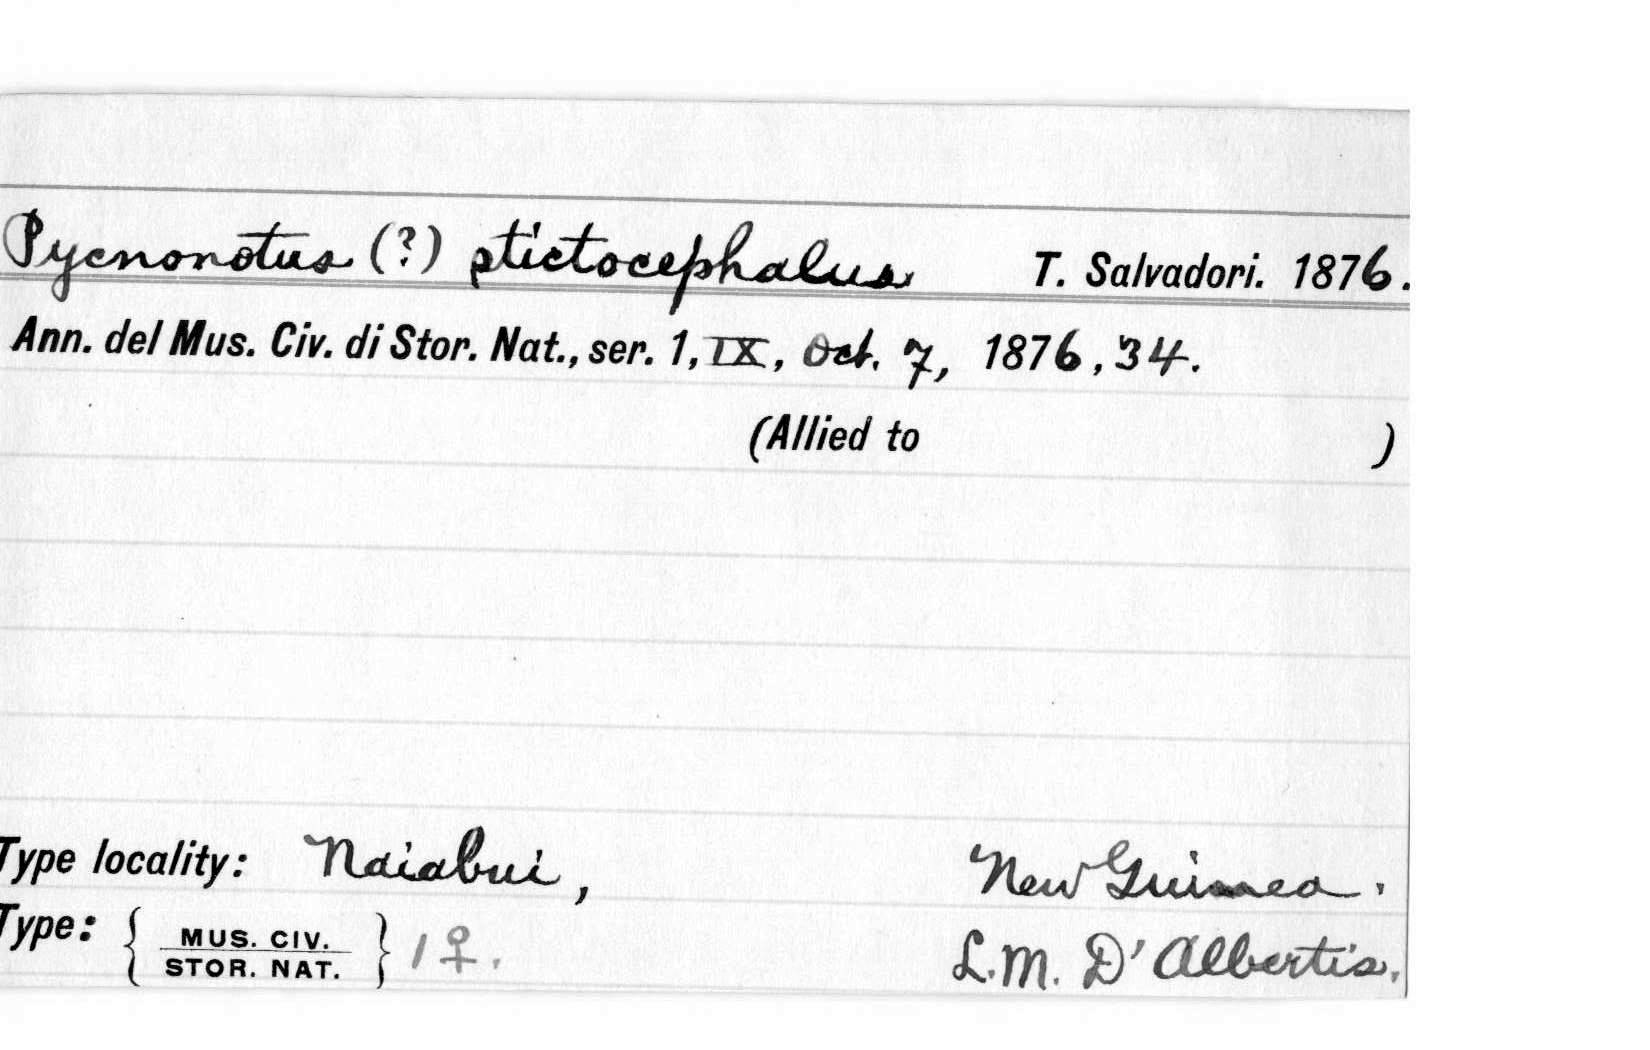 Pycnonotus (?) stictocephalus T. Salvadori. 1876.
Ann. del Mus. Civ. di Stor. Nat., ser. 1, IX, Oct. 7, 1876, 34.
(Allied to )
Type locality: Naiabui, New Guinea.
Type: { MUS. CIV. STOR. NAT. } 1♀. L.M. D'Albertis.